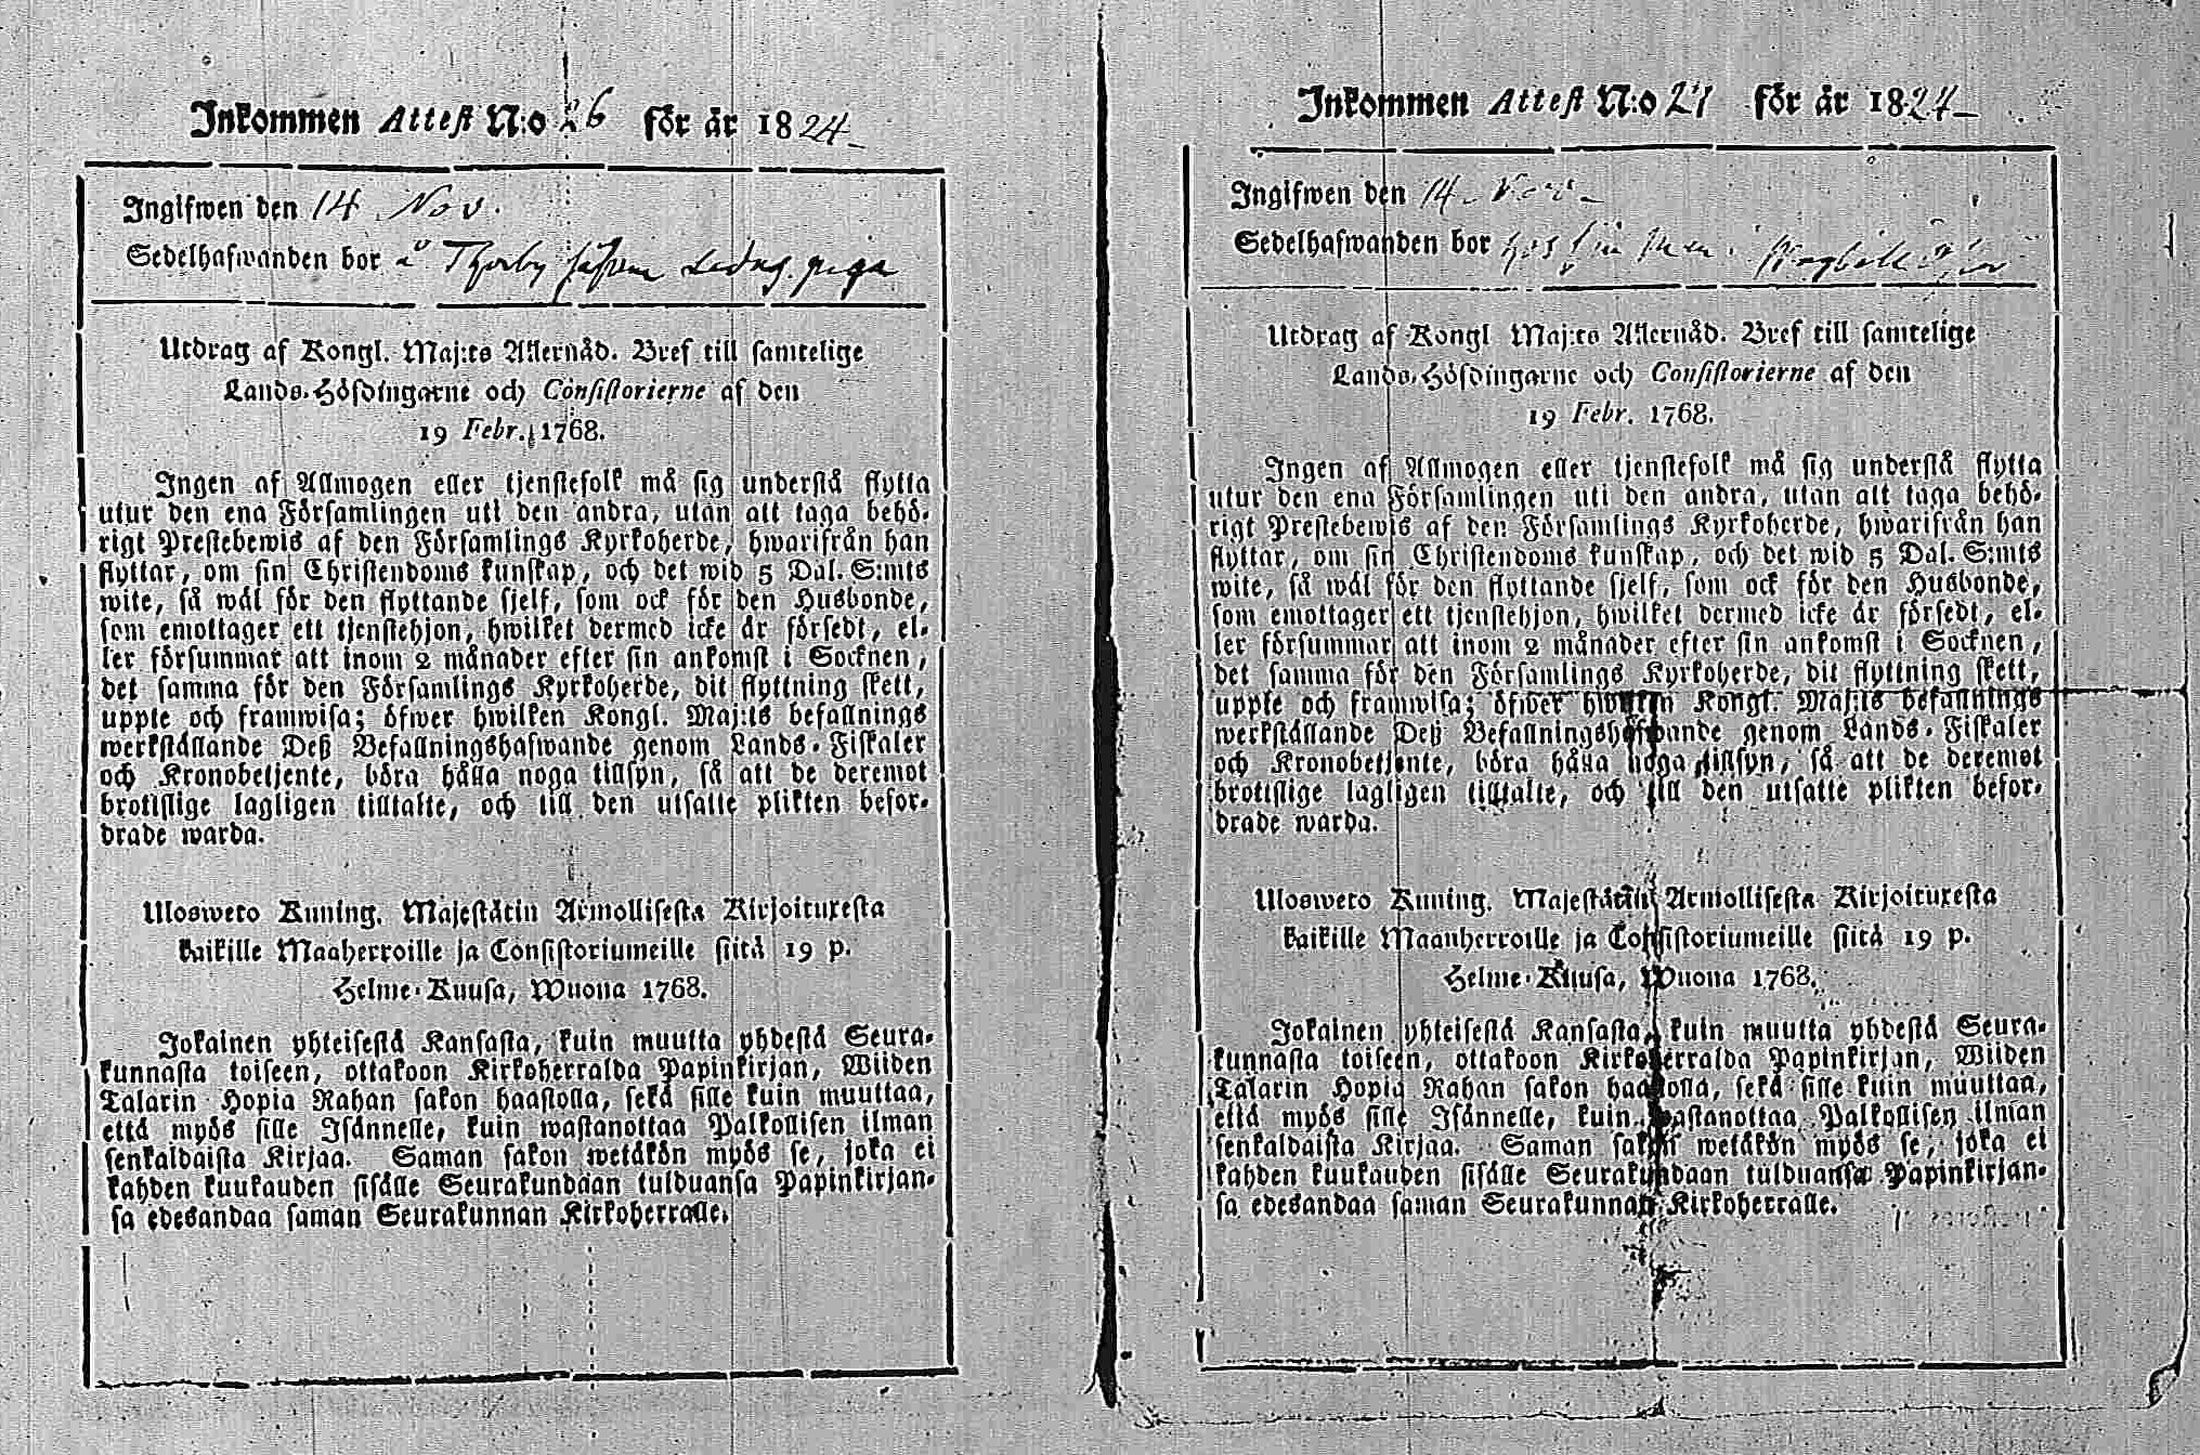 Inkommen Attest N:o 26 för år 1824
Ingifwen den 14 Nov.
Sedelhafwanden bor å Thorby såsom Ledng. piga
Utdrag af Kongl. Maj:ts Allernåd. Bref till samtelige
Lands-Höfdingarne och Consistorierne af den
19 Febr. 1768.
Ingen af Allmogen eller tjenstefolk må sig understå flytta
utur den ena Församlingen uti den andra, utan att taga behö-
rigt Prestebewis af den Församlings Kyrkoherde, hwarifrån han
flyttar, om sin Christendoms kunskap, och det wid 5 Dal. S:mts
wite, så wäl för den flyttande sjelf, som ock för den Husbonde,
som emottager ett tjenstehjon, hwilket dermed icke är försedt, el-
ler försummar att inom 2 månader efter sin ankomst i Socknen,
det samma för den Församlings Kyrkoherde, dit flyttning skett,
uppte och framwisa; öfwer hwilken Kongl. Maj:ts befallnings
werkställande Deß Befallningshafwande genom Lands-Fiskaler
och Kronobetjente, böra hålla noga tillsyn, så att de deremot
brottslige lagligen tilltalte, och till den utsatte plikten befor-
drade warda.
Ulosweto Kuning. Majestätin Armollisesta Kirjoituxesta
kaikille Maaherroille ja Consistoriumeille siitä 19 p.
Helme-Kuusa, Wuona 1768.
Jokainen yhteisestä Kansasta, kuin muutta yhdestä Seura-
kunnasta toiseen, ottakoon Kirkoherralda Papinkirjan, Wiiden
Talarin Hopia Rahan sakon haastolla, sekä sille kuin muuttaa,
että myös sille Isännelle, kuin wastanottaa Palkollisen ilman
senkaldaista Kirjaa. Saman sakon wetäkön myös se, joka ei
kahden kuukauden sisälle Seurakundaan tulduansa Papinkirjan-
sa edesandaa saman Seurakunnan Kirkoherralle.
Inkommen Attest N:o för år 1824
Ingifwen den 14 Nov.
Sedelhafwanden bor hos sin
Utdrag af Kongl Maj:ts Allernåd. Bref till samtelige
Lands-Höfdingarne och Consistorierne af den
19 Febr. 1768.
Ingen af Allmogen eller tjenstefolk må sig understå flytta
utur den ena Församlingen uti den andra, utan att taga behö-
rigt Prestebewis af den Församlings Kyrkoherde, hwarifrån han
flyttar, om sin Christendoms kunskap, och det wid 5 Dal. S:mts
wite, så wäl för den flyttande sjelf, som ock för den Husbonde,
som emottager ett tjenstehjon, hwilket dermed icke är försedt, el-
ler försummar att inom 2 månader efter sin ankomst i Socknen,
det samma för den Församlings Kyrkoherde, dit flyttning skett,
uppte och framwisa; öfwer hwilken Kongl. Maj:ts befallnings
werkställande Deß Befallningshafwande genom Lands-Fiskaler
och Kronobetjente, böra hålla noga tillsyn, så att de deremot
brottslige lagligen tilltalte, och till den utsatte plikten befor-
drade warda.
Ulosweto Kuning. Majestätin Armollisesta Kirjoituxesta
kaikille Maanherroille ja Consistoriumeille siitä 19 p.
Helme-Kuusa, Wuona 1768.
Jokainen yhteisestä Kansasta, kuin muutta yhdestä Seura-
kunnasta toiseen, ottakoon Kirkoherralda Papinkirjan, Wiiden
Talarin Hopia Rahan sakon haastolla, sekä sille kuin muuttaa,
että myös sille Isännelle, kuin wastanottaa Palkollisen ilman
senkaldaista Kirjaa. Saman sakon wetäkön myös se, joka ei
kahden kuukauden sisälle Seurakundaan tulduansa Papinkirjan-
sa edesandaa saman Seurakunnan Kirkoherralle.